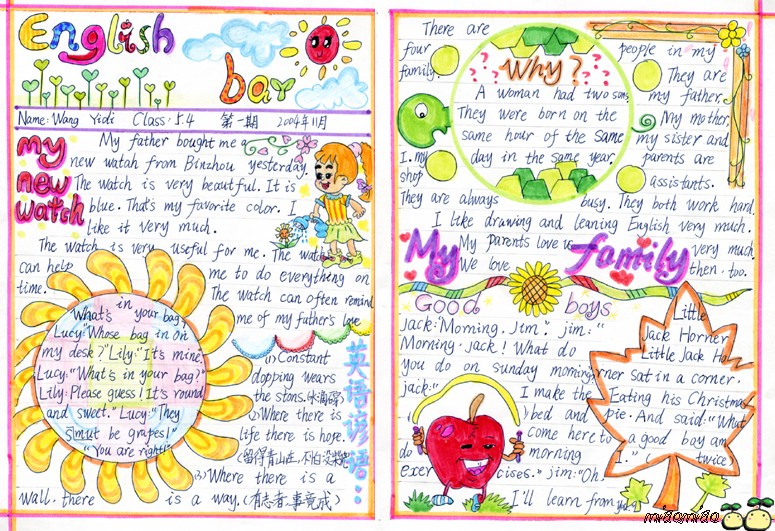 English
bay
Name: Wang Yidi Class: 5.4 第一期 2004年11月
my
new
watch
My father bought me a
new watah from Binzhou yesterday.
The watch is very beautful. It is
blue. That's my favorite color. I
like it very much.
The watch is very useful for me. The watch
can help me to do everytheng on
time. The watch can often remind
me of my father's love
What's in your bag,
Lucy:"Whose bag in on
my desk?"Lily:"It's mine.
Lucy:"What's in your bag?"
Lily: Please guess! It's round
and sweet." Lucy:"They
smut be grapes!"
"You are right!"
英语谚语...
(1) Constant
dopping wears
the stons.(水滴石穿)
(2) Where there is
life there is hope.
(留得青山在,不怕没柴烧)
(3) Where there is a
wall, there is a way.(有志者,事竟成)
There are
four people in my
family. They are
my father,
My mother,
my sister and
I. my parents are
shop assistants.
They are always busy. They both work hard.
I like drawing and leaning English very much.
My parents love us very much
We love then, too.
My family
Why?
A woman had two sons,
They were born on the
same hour of the same
day in the same year.
Good boys
jack:"Morning. Jim." jim:"
Morning. jack! What do
you do on sunday morning
jack:" I make the
bed and
come here to
do morning
exercises." jim:"Oh!
I'll learn from you."
Little
Jack Horner
Little Jack Ho
rner sat in a corner.
Eating his Christmas
pie. And said:"What
a good boy am
I." ( twice)
miaomiao